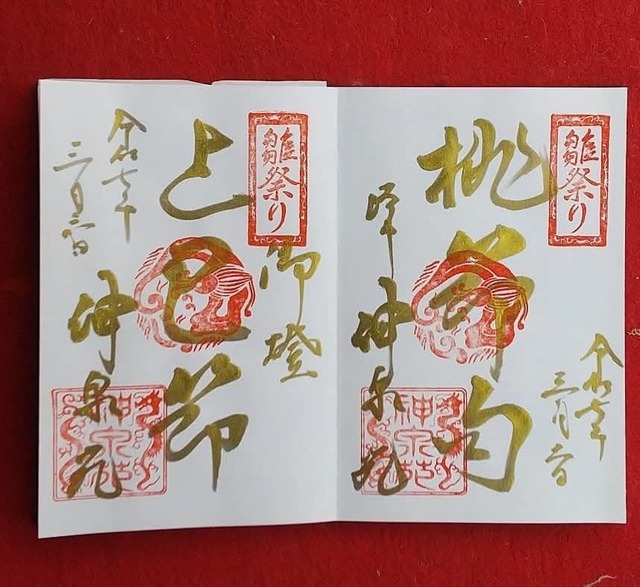 雛祭り
令和七年
三月吉日
桃節句
神泉苑
神泉苑
雛祭り
御燈
上巳節
令和七年
三月
神泉苑
神泉苑